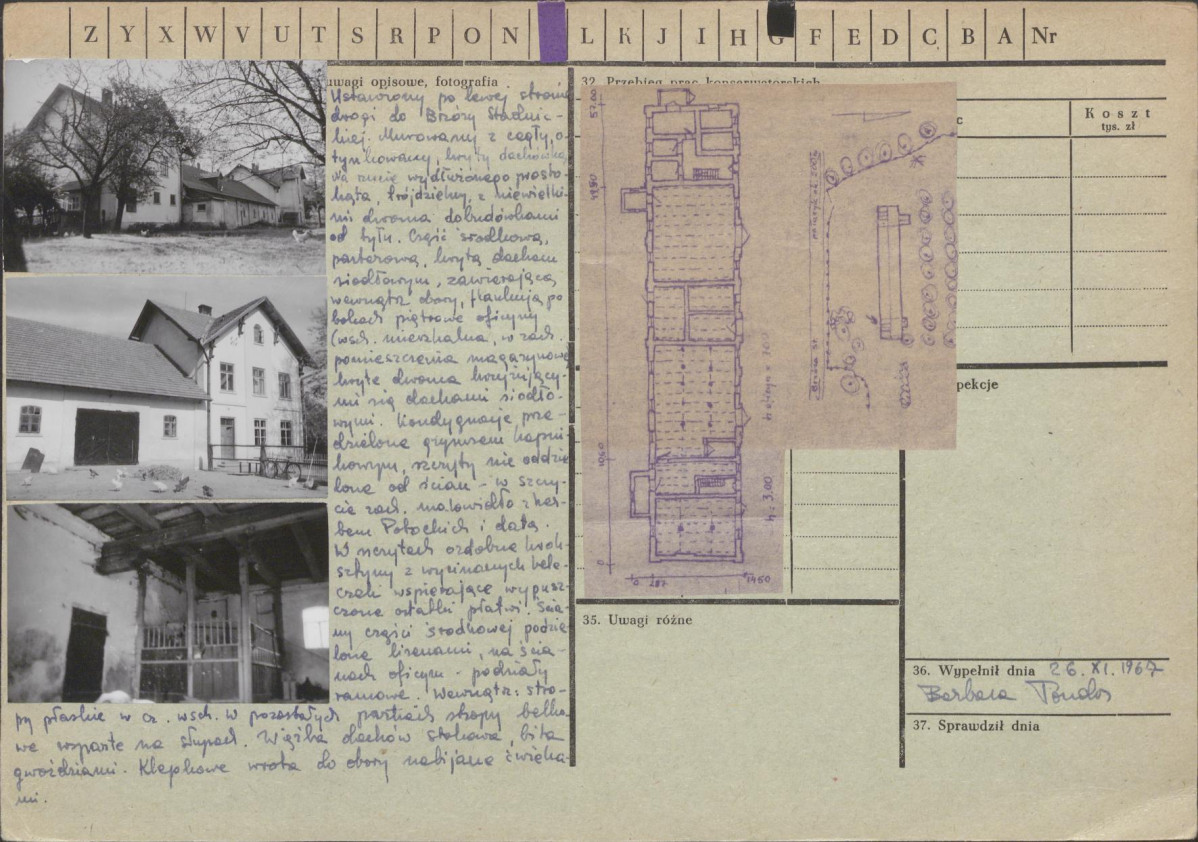 Z Y X W V U T S R P O N L K J I H G F E D C B A Nr
uwagi opisowe, fotografia
Ustawiony po lewej stronie
drogi do Brzózy Stadnic-
kiej. Murowany z cegły, o-
tynkowany, kryty dachówką,
na rzucie wydłużonego prosto-
kąta, trójdzielny, z niewielki-
mi dwoma dobudówkami
od tyłu. Część środkowa,
parterowa, kryta dachem
siodłowym, zawierająca
wewnątrz obory, flankują po
bokach piętrowe oficyny
(wsch. mieszkalna, w zach.
pomieszczenia magazynowe
kryte dwoma krzyżujący-
mi się dachami siodło-
wymi. Kondygnacje prze-
dzielone gzymsem kapni-
kowym, szczyty nie oddzie
lone od ścian - w szczy-
cie zach. malowidło z her-
bem Potockich i datą.
W szczytach ozdobne krok-
sztyny z wyrzinanych bele-
czek wspierające wypusz-
czone ostatki płatwi. Ścia-
ny części środkowej podzie-
lone lizenami, na ścia-
nach oficyn - podziały
ramowe. Wewnątrz: stro-
py płaskie w cz. wsch. w pozostałych partiach stropy belko-
we wsparte na słupach. Więźba dachów stolcowa, bita
gwoździami. Klepkowe wrota do obory nabijane ćwieka-
mi.
32. Przebieg prac konserwatorskich
Koszt
tys. zł
57.00
10.60
0
0 287 1460
h = 3.00
pekcje
35. Uwagi różne
36. Wypełnił dnia 26. XI. 1967
Barbara
37. Sprawdził dnia